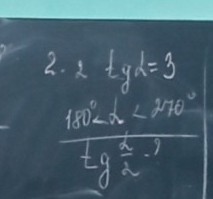 2. 2 tg α = 3
180° < α < 270°
tg α/2 - ?